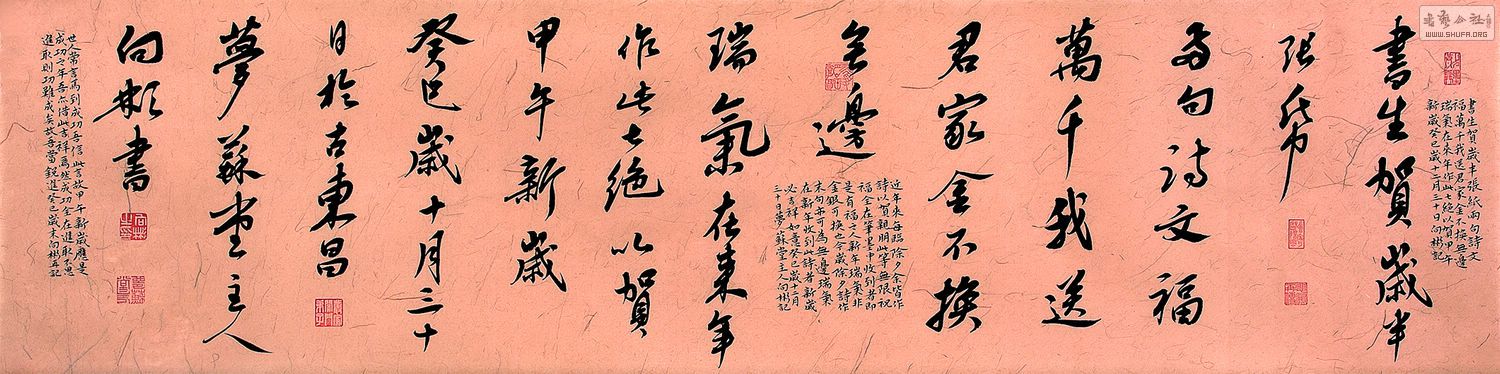 书艺公社
WWW.SHUFA.ORG
書生賀歲半張紙兩句詩文
福萬千我送君家金不換無邊
瑞氣在來年作此七絕以賀甲午
新歲癸巳歲十二月三十日向彬記
書生賀歲半
張紙
兩句詩文福
萬千我送
君家金不換
無邊
近年來每臨除夕余皆作
詩以賀親朋此等無限祝
福全在筆墨中收到者即
是有福之人新年瑞氣非
金銀可換也今歲除夕詩作
末句亦可為無邊瑞氣
在新年收到此詩者新歲
必吉祥如意癸巳歲十二月
三十日夢蘇堂主人向彬記
瑞氣在來年
作此七絕以賀
甲午新歲
癸巳歲十月三十
日於古東昌
夢蘇堂主人
向彬書
世人常言馬到成功吾信此言故甲午新歲應是
成功之年吾亦借此言祥焉然成功全在進取不思
進取則功難成矣故吾當銳進癸巳歲末向彬再記